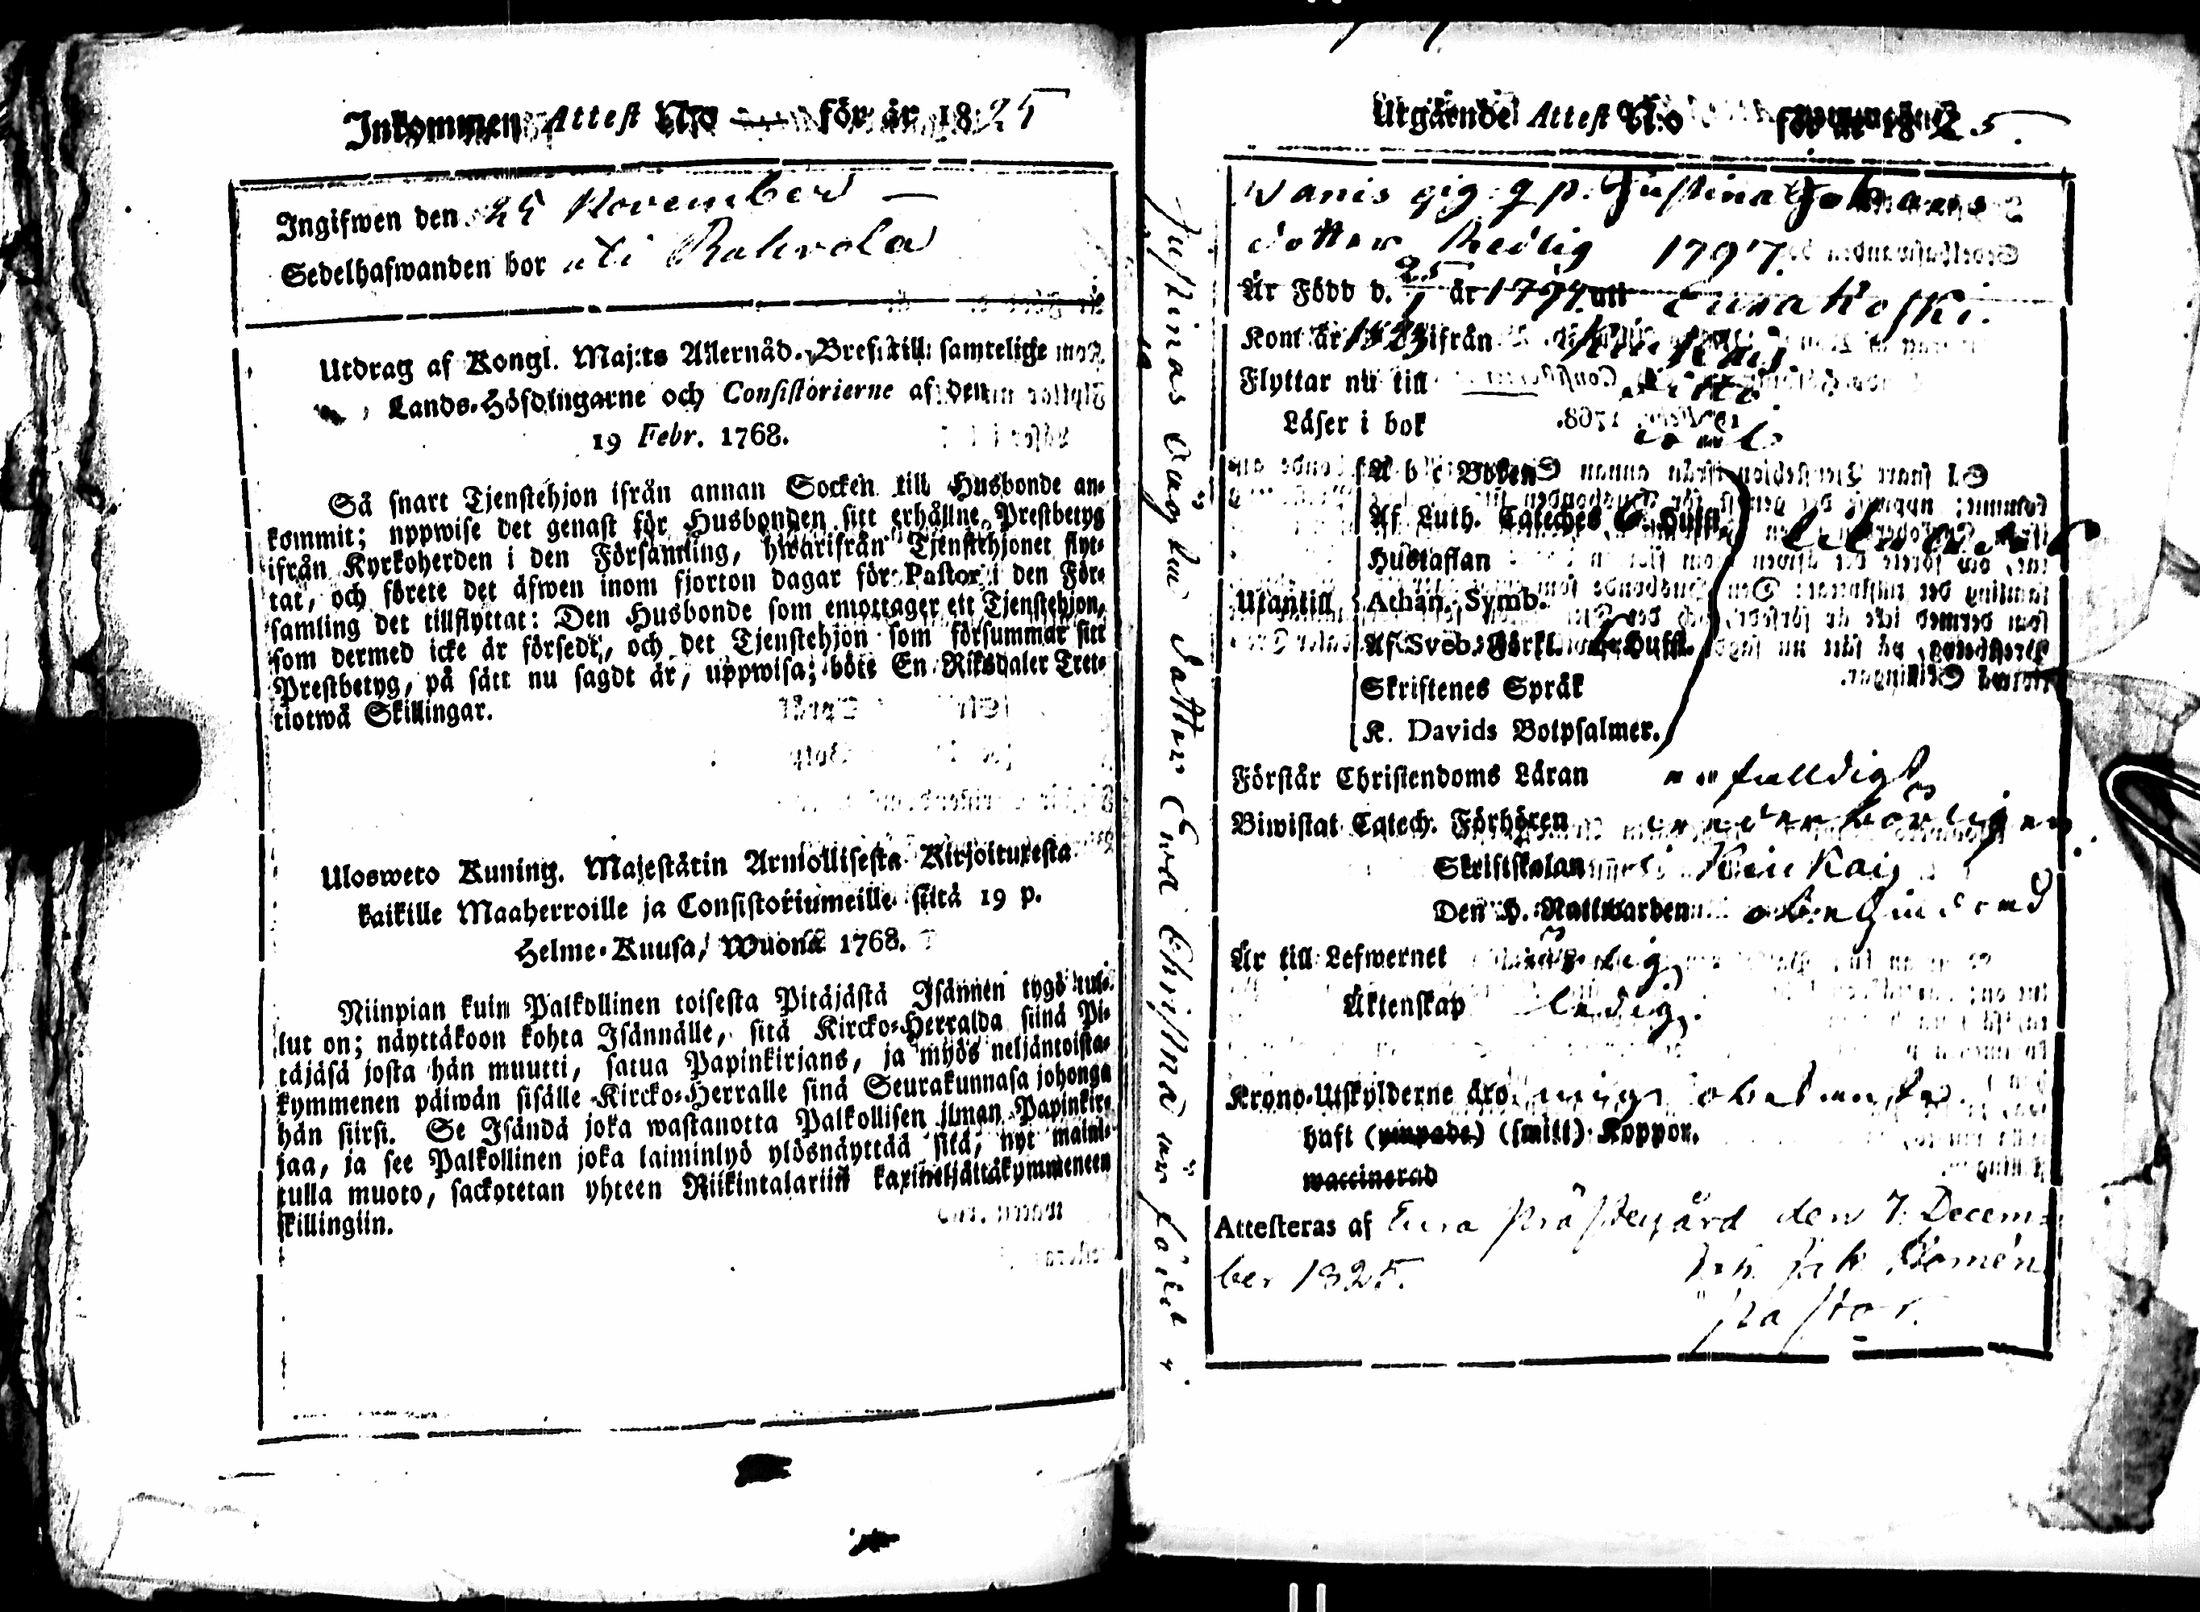 Inkommen Attest No för år 1825
Ingifwen den 25 November
Sedelhafwanden bor uti Rahvola
Utdrag af Kongl. Maj:ts Allernåd. Bref till samtelige
Lands-Höfdingarne och Consistorierne af den
19 Febr. 1768.
Så snart Tjenstehjon ifrån annan Socken till Husbonde an-
kommit; uppwise det genast för Husbonden sitt erhållne Prestbetyg
ifrån Kyrkoherden i den Församling, hwarifrån Tjenstehjonet flyt-
tat, och förete det äfwen inom fjorton dagar för Pastor i den För-
samling det tillflyttat: Den Husbonde som emottager ett Tjenstehjon,
som dermed icke är försedt, och det Tjenstehjon som försummar sitt
Prestbetyg, på sätt nu sagdt är, uppwisa; böte En Riksdaler Tret-
tiotwå Skillingar.
Ulosweto Kuning. Majestätin Armollisesta Kirjoituxesta
kaikille Maaherroille ja Consistoriumeille siitä 19 p.
Helme-Kuusa, Wuonä 1768.
Niinpian kuin Palkollinen toisesta Pitäjästä Isännen tygö tul-
lut on; näyttäkoon kohta Isännälle, sitä Kircko-Herralda siinä Pi-
täjäsä josta hän muutti, satua Papinkirjans, ja myös neljäntoista-
kymmenen päiwän sisälle Kircko-Herralle sinä Seurakunnasa johonga
hän siirsi. Se Isändä joka wastanotta Palkollisen ilman Papinkir-
jaa, ja see Palkollinen joka laiminlyö ylösnäyttää sitä, nyt maini-
tulla muoto, sackotetan yhteen Riikintalariin kaxineljättäkymmeneen
skillingiin.
Justinas Dotter Eva Christina är född
Utgående Attest No för år 1825.
Justina Johans
dotter 1797.
Är Född d. 25/1 år 1797 uti Eura Koski.
Kom år 1823 ifrån Kiukais
Flyttar nu till dito
Läser i bok
A b c Boken
Af Luth. Cateches 6. Hufst.
Hustaflan
Utantill Athan. Symb.
Af Sveb. Förkl. 6. Hufst.
Skriftenes Språk
K. Davids Botpsalmer.
Förstår Christendoms Läran enfalldigt
Biwistat Catech. Förhören
Skriftskolan i Kiukais
Den H. Nattwarden obehindrad
Är till Lefwernet
Äktenskap ledig.
Krono-Utskylderne äro obekante
haft (ympade) (smitt) Koppor.
waccinerad
Attesteras af Eura prästegård den 7. Decem-
ber 1825.
Pastor.